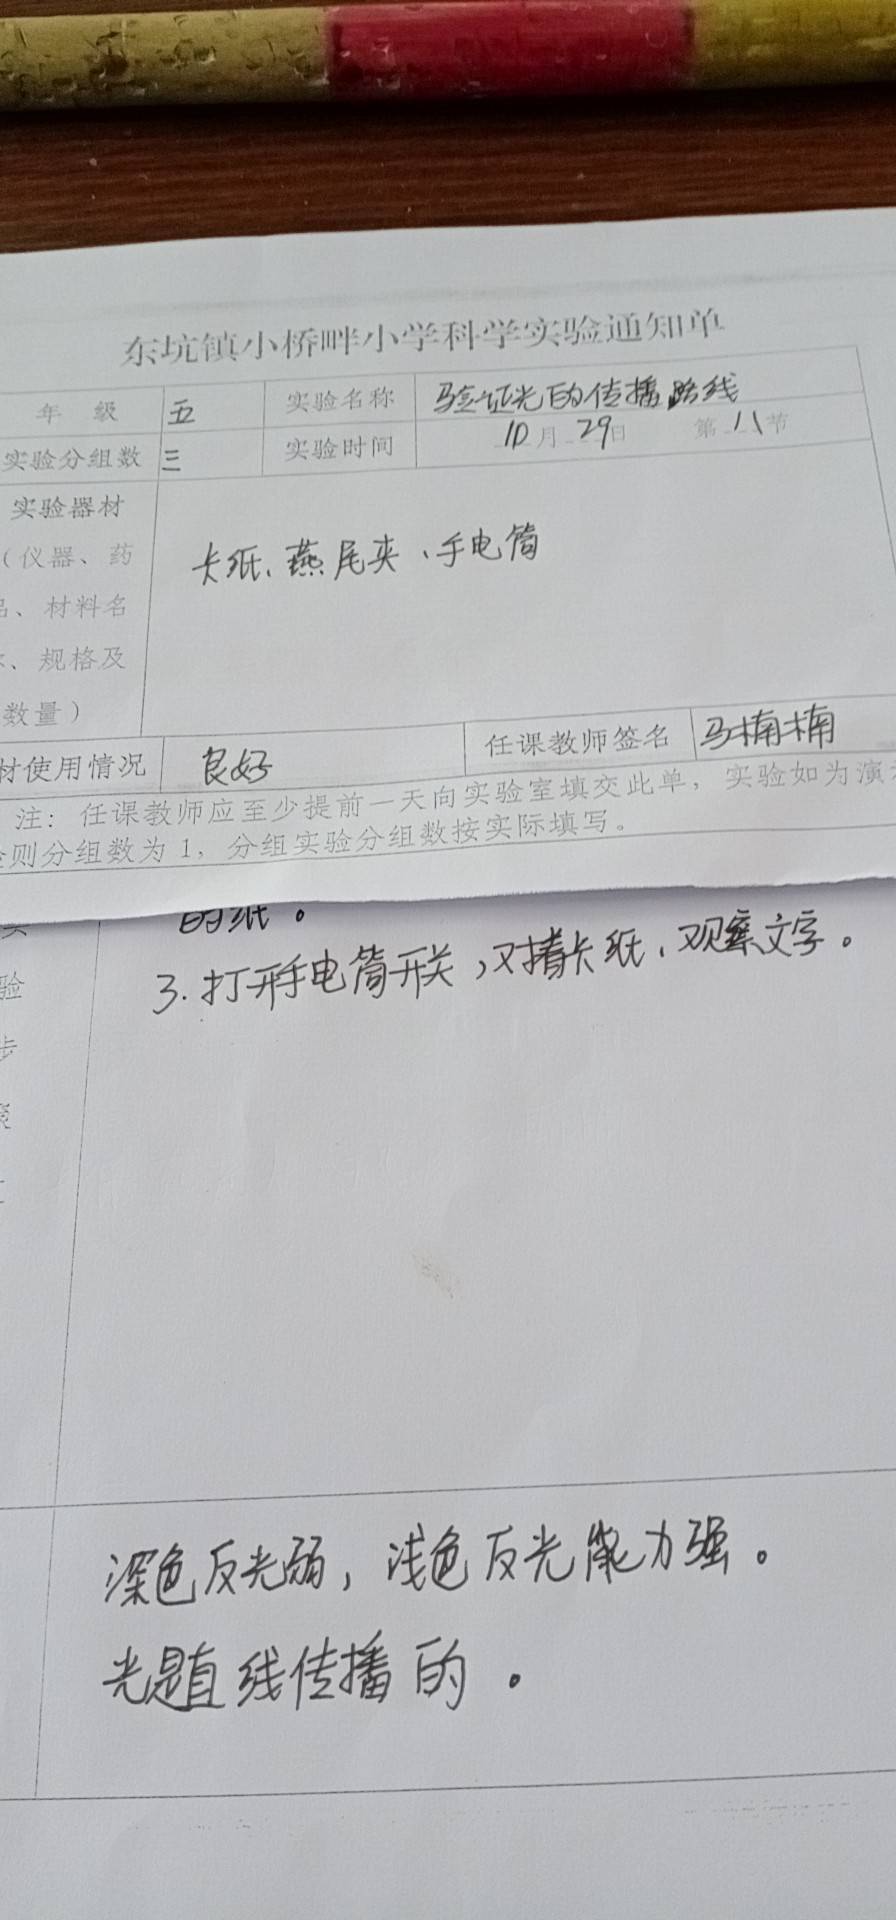 东坑镇小桥畔小学科学实验通知单
年 级 五 实验名称 验证光的传播路线
实验分组数 三 实验时间 10月29日 第八节
实验器材
(仪器、药
品、材料名
、规格及
数量)
卡纸、燕尾夹、手电筒
材使用情况 良好 任课教师签名 马楠楠
注:任课教师应至少提前一天向实验室填交此单,实验如为演
则分组数为1,分组实验分组数按实际填写。
的纸。
验
步
3.打开手电筒开关,对着卡纸、观察文字。
深色反光弱,浅色反光能力强。
光是直线传播的。